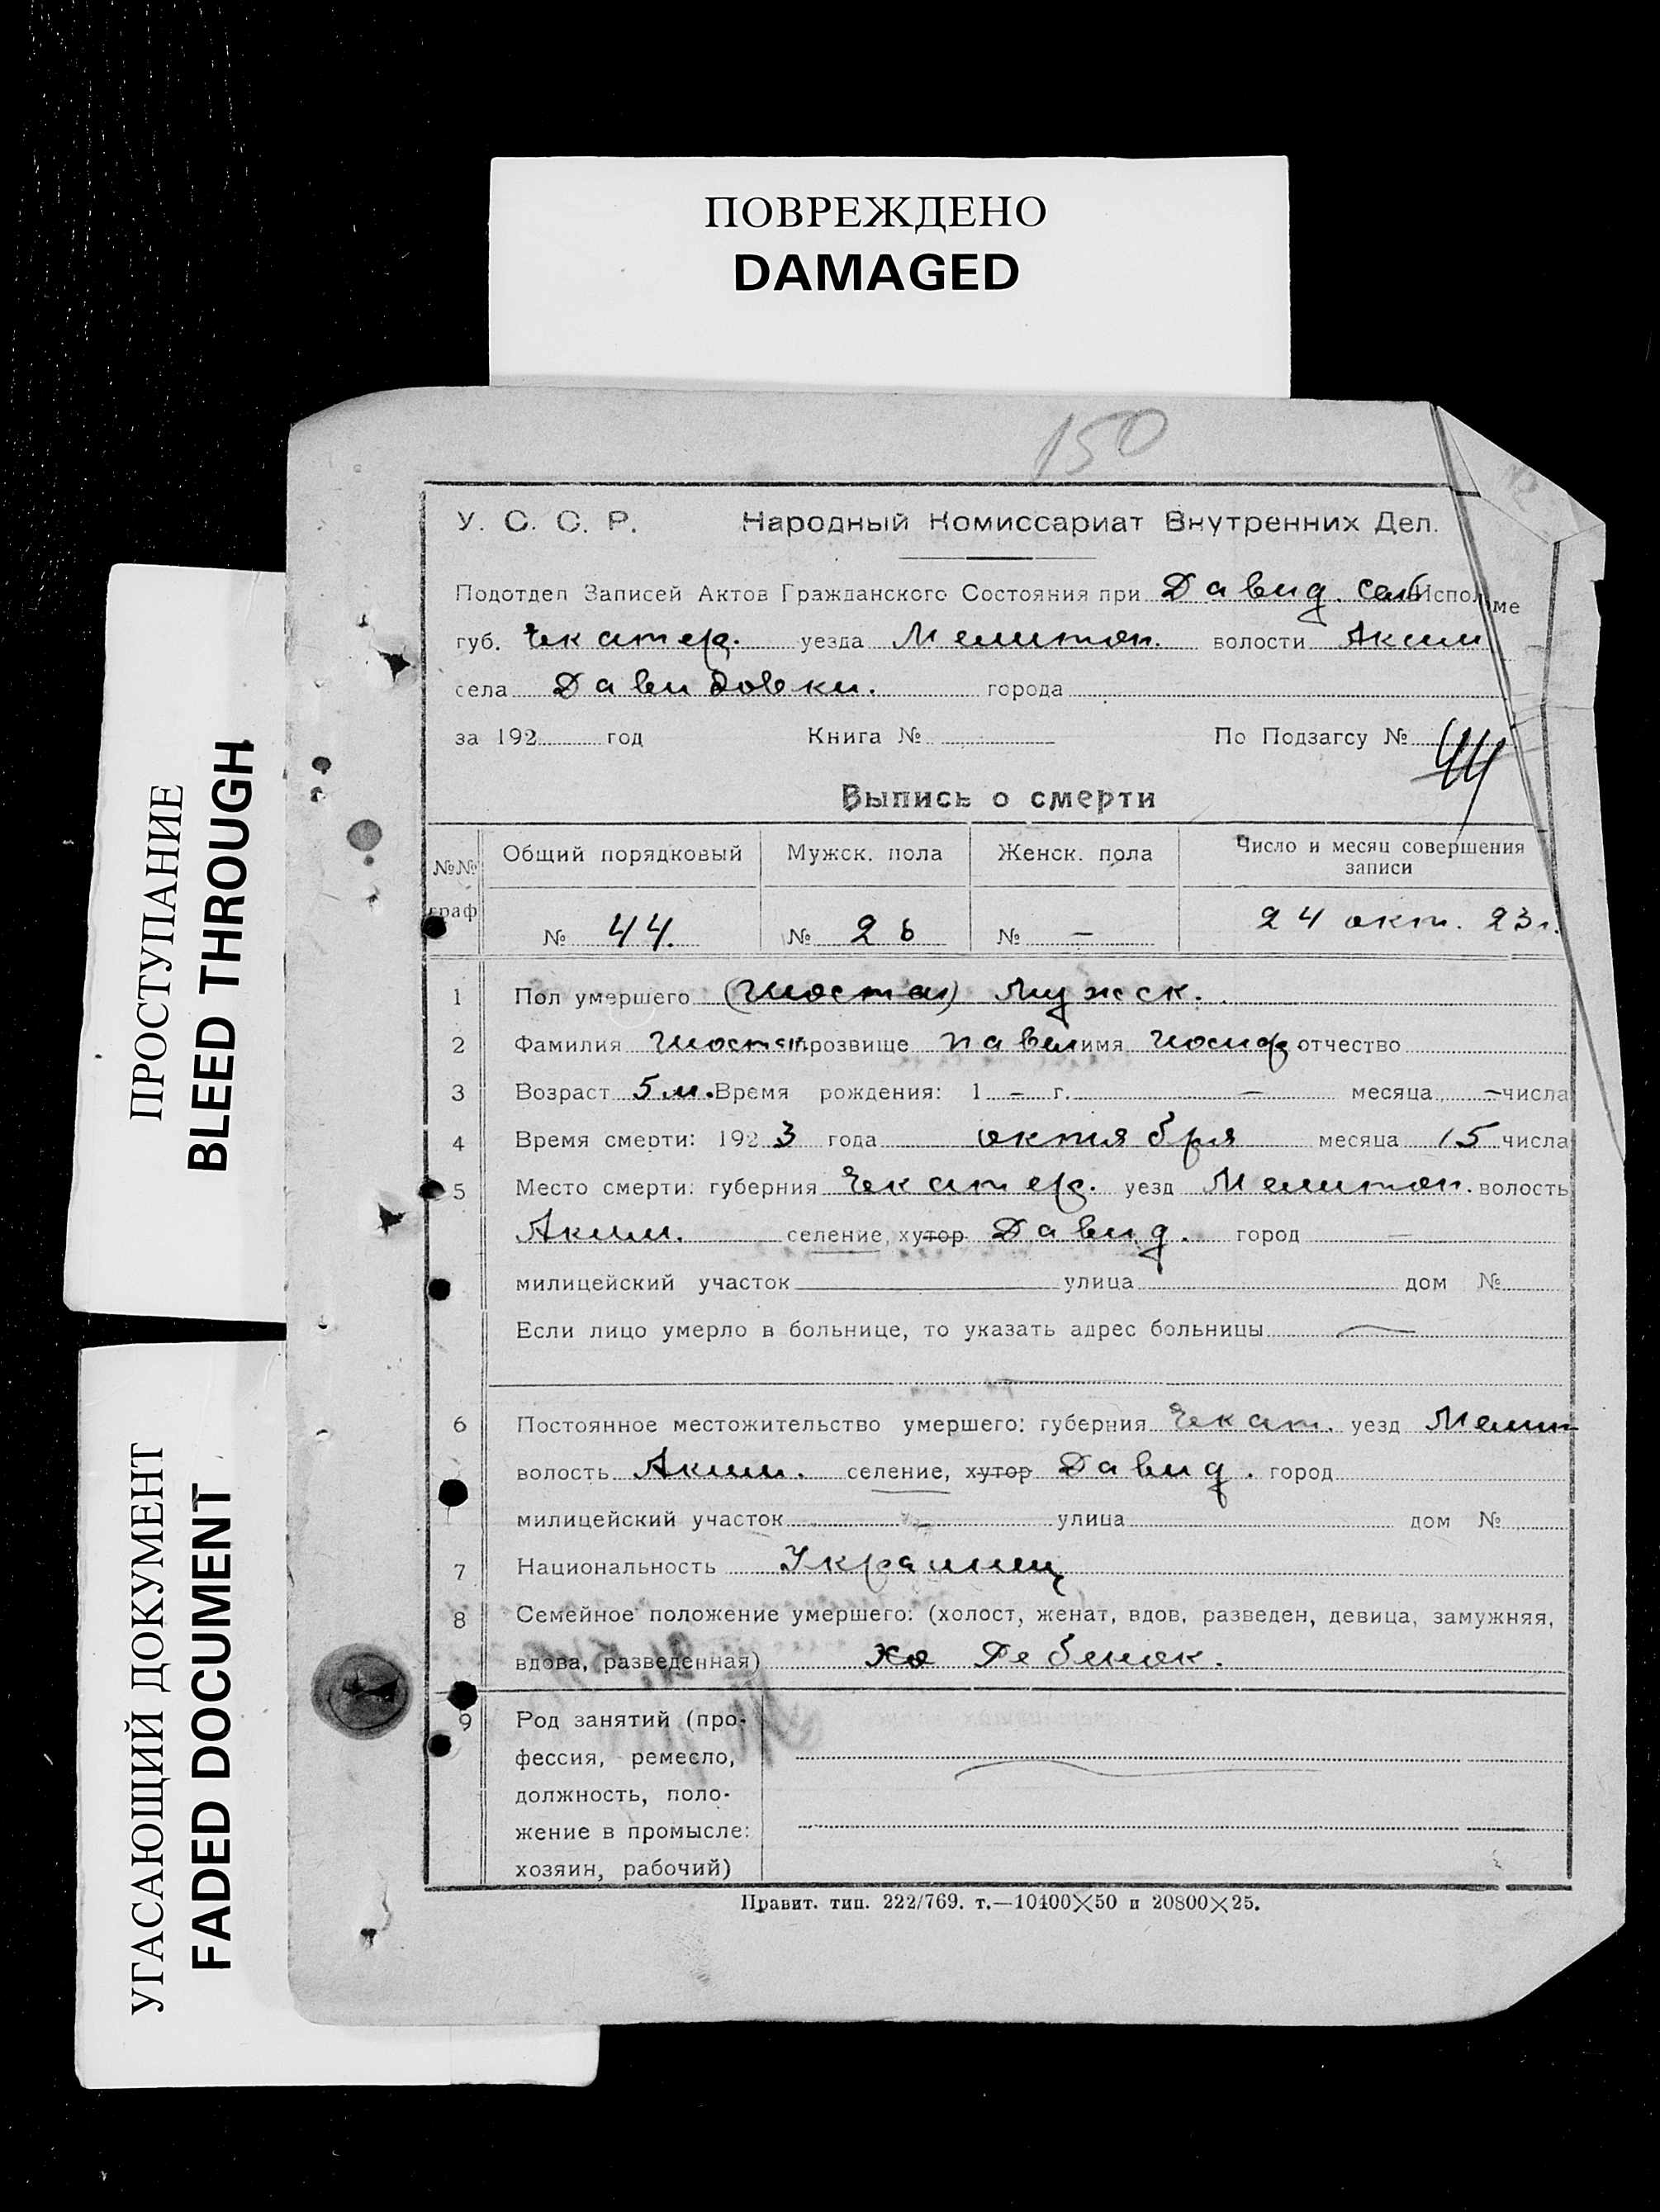 ПОВРЕЖДЕНО
DAMAGED
ПРОСТУПАНИЕ
BLEED THROUGH
УГАСАЮЩИЙ ДОКУМЕНТ
FADED DOCUMENT
150
У. С. С. Р. Народный Комиссариат Внутренних Дел.
Подотдел Записей Актов Гражданского Состояния при Давид. сель Испол ме
губ. Екатер. уезда Мелитоп. волости Аким
села Давидовки. города
за 192 год Книга № По Подзагсу № 44
Выпись о смерти
№№ граф Общий порядковый Мужск. пола Женск. пола Число и месяц совершения записи
№ 44. № 26 № — 24 окт. 23 г.
1 Пол умершего Мужск.
2 Фамилия прозвище Павел имя Иосиф отчество
3 Возраст 5 м. Время рождения: 1 — г. — месяца — числа
4 Время смерти: 1923 года октября месяца 15 числа
5 Место смерти: губерния Екатер. уезд Мелитоп. волость
Аким. селение, хутор Давид. город —
милицейский участок улица дом №
Если лицо умерло в больнице, то указать адрес больницы —
6 Постоянное местожительство умершего: губерния Екат. уезд Мелит
волость Аким. селение, хутор Давид. город
милицейский участок — улица дом №
7 Национальность Украинец
8 Семейное положение умершего: (холост, женат, вдов, разведен, девица, замужняя,
вдова, разведенная) хо Ребенок.
9 Род занятий (про-
фессия, ремесло,
должность, поло-
жение в промысле:
хозяин, рабочий)
Правит. тип. 222/769. т.—10400×50 и 20800×25.